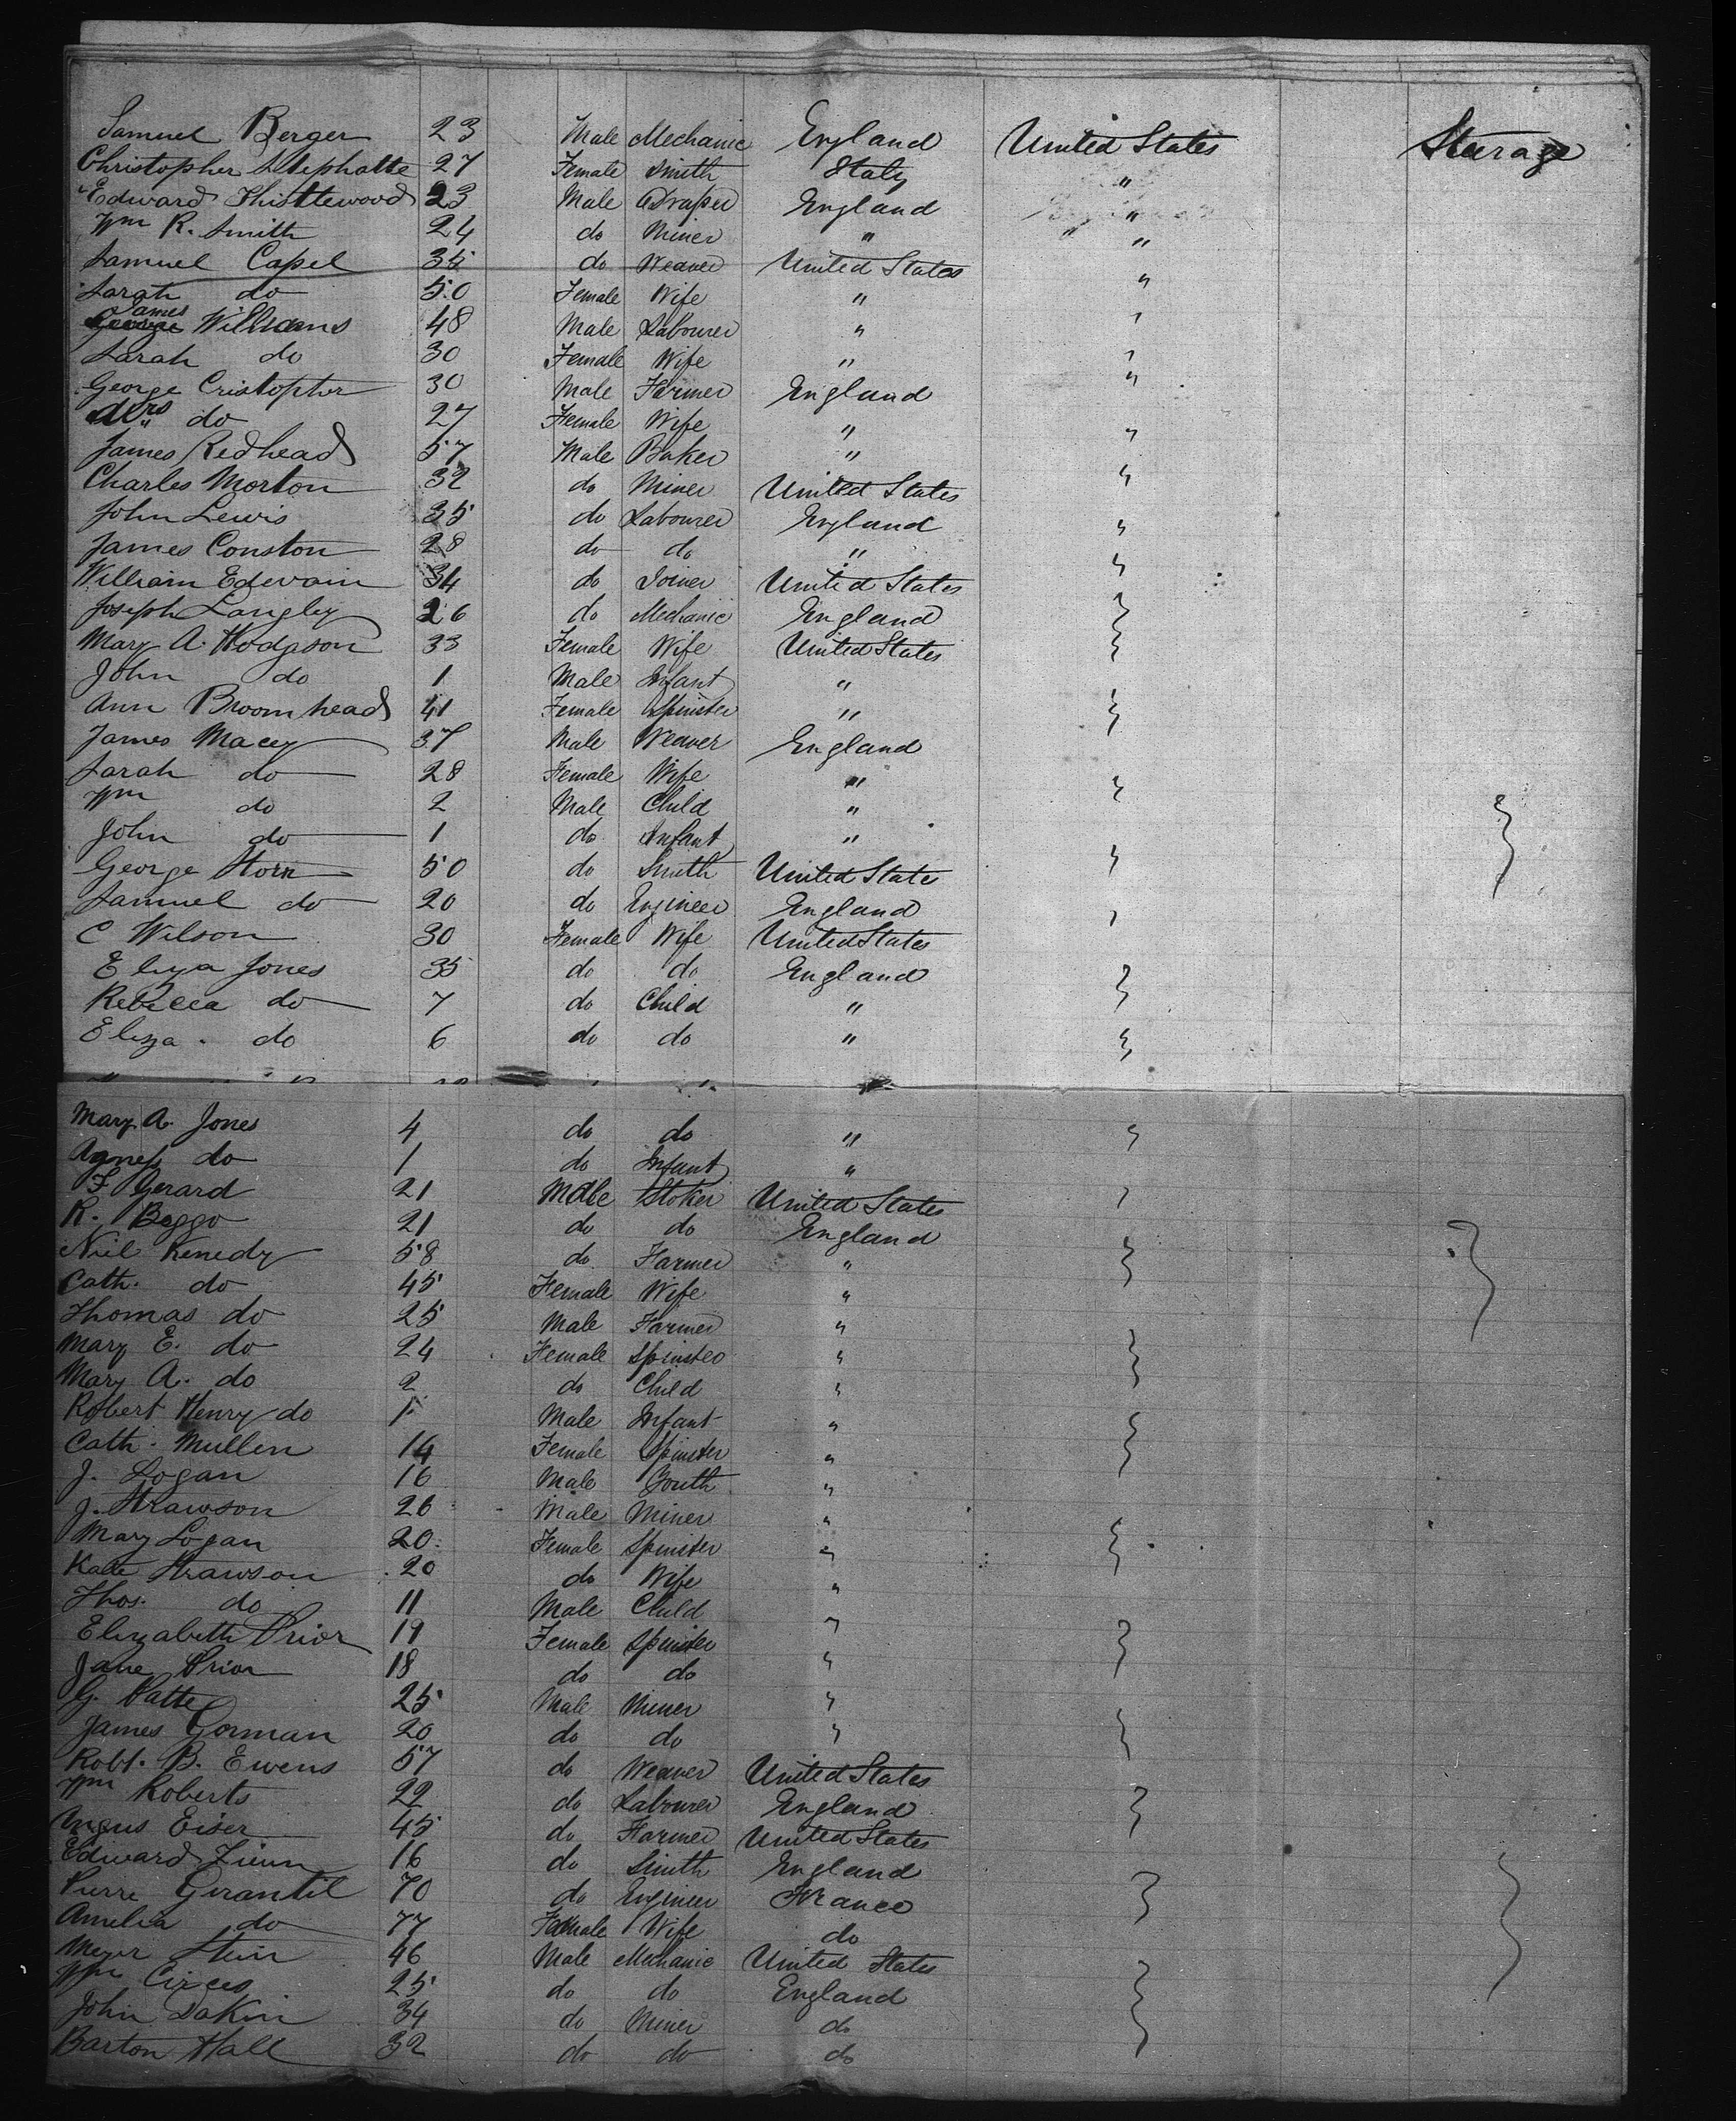 Samuel Berger 23 Male Mechanic England United States Steerage
Christopher Stephatte 27 Female Smith Italy "
Edward Thistlewood 23 Male Draper England "
Wm R. Smith 24 do Miner " " "
Samuel Capel 35 do Weaver United States
Sarah do 50 Female Wife " "
James Williams 48 Male Labourer " "
Sarah do 30 Female Wife " "
George Cristopher 30 Male Farmer England "
Mrs do 27 Female Wife " "
James Redhead 57 Male Baker "
Charles Morton 32 do Miner United States "
John Lewis 35 do Labourer England "
James Conston 28 do do "
William Edevain 34 do Joiner United States "
Joseph Langley 26 do Mechanic England
Mary A. Hodgson 33 Female Wife United States
John do 1 Male Infant "
Ann Broomhead 41 Female Spinster "
James Macey 37 Male Weaver England
Sarah do 28 Female Wife "
Wm do 2 Male Child "
John do 1 do Infant "
George Horn 50 do Smith United State "
Samuel do 20 do Engineer England "
C Wilson 30 Female Wife United States
Eliza Jones 35 do do England
Rebecca do 7 do Child "
Eliza do 6 do do "
Mary A. Jones 4 do do " "
Agness do 1 do Infant "
F Gerard 21 Male Stoker United States "
R. Beggo 21 do do England
Niel Kenedy 58 do Farmer "
Cath. do 45 Female Wife "
Thomas do 25 Male Farmer "
Mary E. do 24 Female Spinster "
Mary A. do 2 do Child "
Robert Henry do 1 Male Infant "
Cath. Mullen 14 Female Spinster "
J. Logan 16 Male Youth "
J. Strawson 26 Male Miner "
Mary Logan 20 Female Spinster "
Kate Strawson 20 do Wife "
Thos. do 11 Male Child "
Elizabeth Prior 19 Female Spinster "
Jane Prior 18 do do "
G. Patte 25 Male Miner "
James Gorman 20 do do "
Robt. B. Ewens 57 do Weaver United States
Wm Roberts 22 do Labourer England
Angus Eiser 45 do Farmer United States
Edward 16 do Smith England
Pierre Gerantil 70 do Engineer France
Amelia do 77 Female Wife do
Meyer Stein 46 Male Mechanic United States
Wm 25 do do England
John Dakin 34 do Miner do
Barton Hall 32 do do do